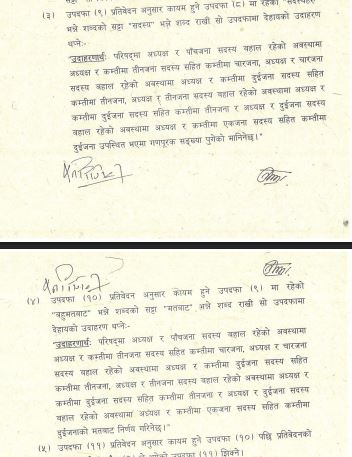 (३) उपदफा (९) प्रतिवेदन अनुसार कायम हुने उपदफा (८) मा रहेको "सदस्यहरु"
भन्ने शब्दको सट्टा "सदस्य" भन्ने शब्द राखी सो उपदफामा देहायको उदाहरण
थप्ने:-
"उदाहरणार्थः परिषद्मा अध्यक्ष र पाँचजना सदस्य बहाल रहेको अवस्थामा
अध्यक्ष र कम्तीमा तीनजना सदस्य सहित कम्तीमा चारजना, अध्यक्ष र चारजना
सदस्य बहाल रहेको अवस्थामा अध्यक्ष र कम्तीमा दुईजना सदस्य सहित
कम्तीमा तीनजना, अध्यक्ष र तीनजना सदस्य बहाल रहेको अवस्थामा अध्यक्ष र
कम्तीमा दुईजना सदस्य सहित कम्तीमा तीनजना र अध्यक्ष र दुईजना सदस्य
बहाल रहेको अवस्थामा अध्यक्ष र कम्तीमा एकजना सदस्य सहित कम्तीमा
दुईजना उपस्थित भएमा गणपूरक सङ्ख्या पुगेको मानिनेछ।"
(४) उपदफा (१०) प्रतिवेदन अनुसार कायम हुने उपदफा (९) मा रहेको
"बहुमतबाट" भन्ने शब्दको सट्टा "मतबाट" भन्ने शब्द राखी सो उपदफामा
देहायको उदाहरण थप्ने:-
"उदाहरणार्थः परिषद्मा अध्यक्ष र पाँचजना सदस्य बहाल रहेको अवस्थामा
अध्यक्ष र कम्तीमा तीनजना सदस्य सहित कम्तीमा चारजना, अध्यक्ष र चारजना
सदस्य बहाल रहेको अवस्थामा अध्यक्ष र कम्तीमा दुईजना सदस्य सहित
कम्तीमा तीनजना, अध्यक्ष र तीनजना सदस्य बहाल रहेको अवस्थामा अध्यक्ष र
कम्तीमा दुईजना सदस्य सहित कम्तीमा तीनजना र अध्यक्ष र दुईजना सदस्य
बहाल रहेको अवस्थामा अध्यक्ष र कम्तीमा एकजना सदस्य सहित कम्तीमा
दुईजनाको मतबाट निर्णय गरिनेछ।"
(५) उपदफा (११) प्रतिवेदन अनुसार कायम हुने उपदफा (१०) पछि प्रतिवेदनको